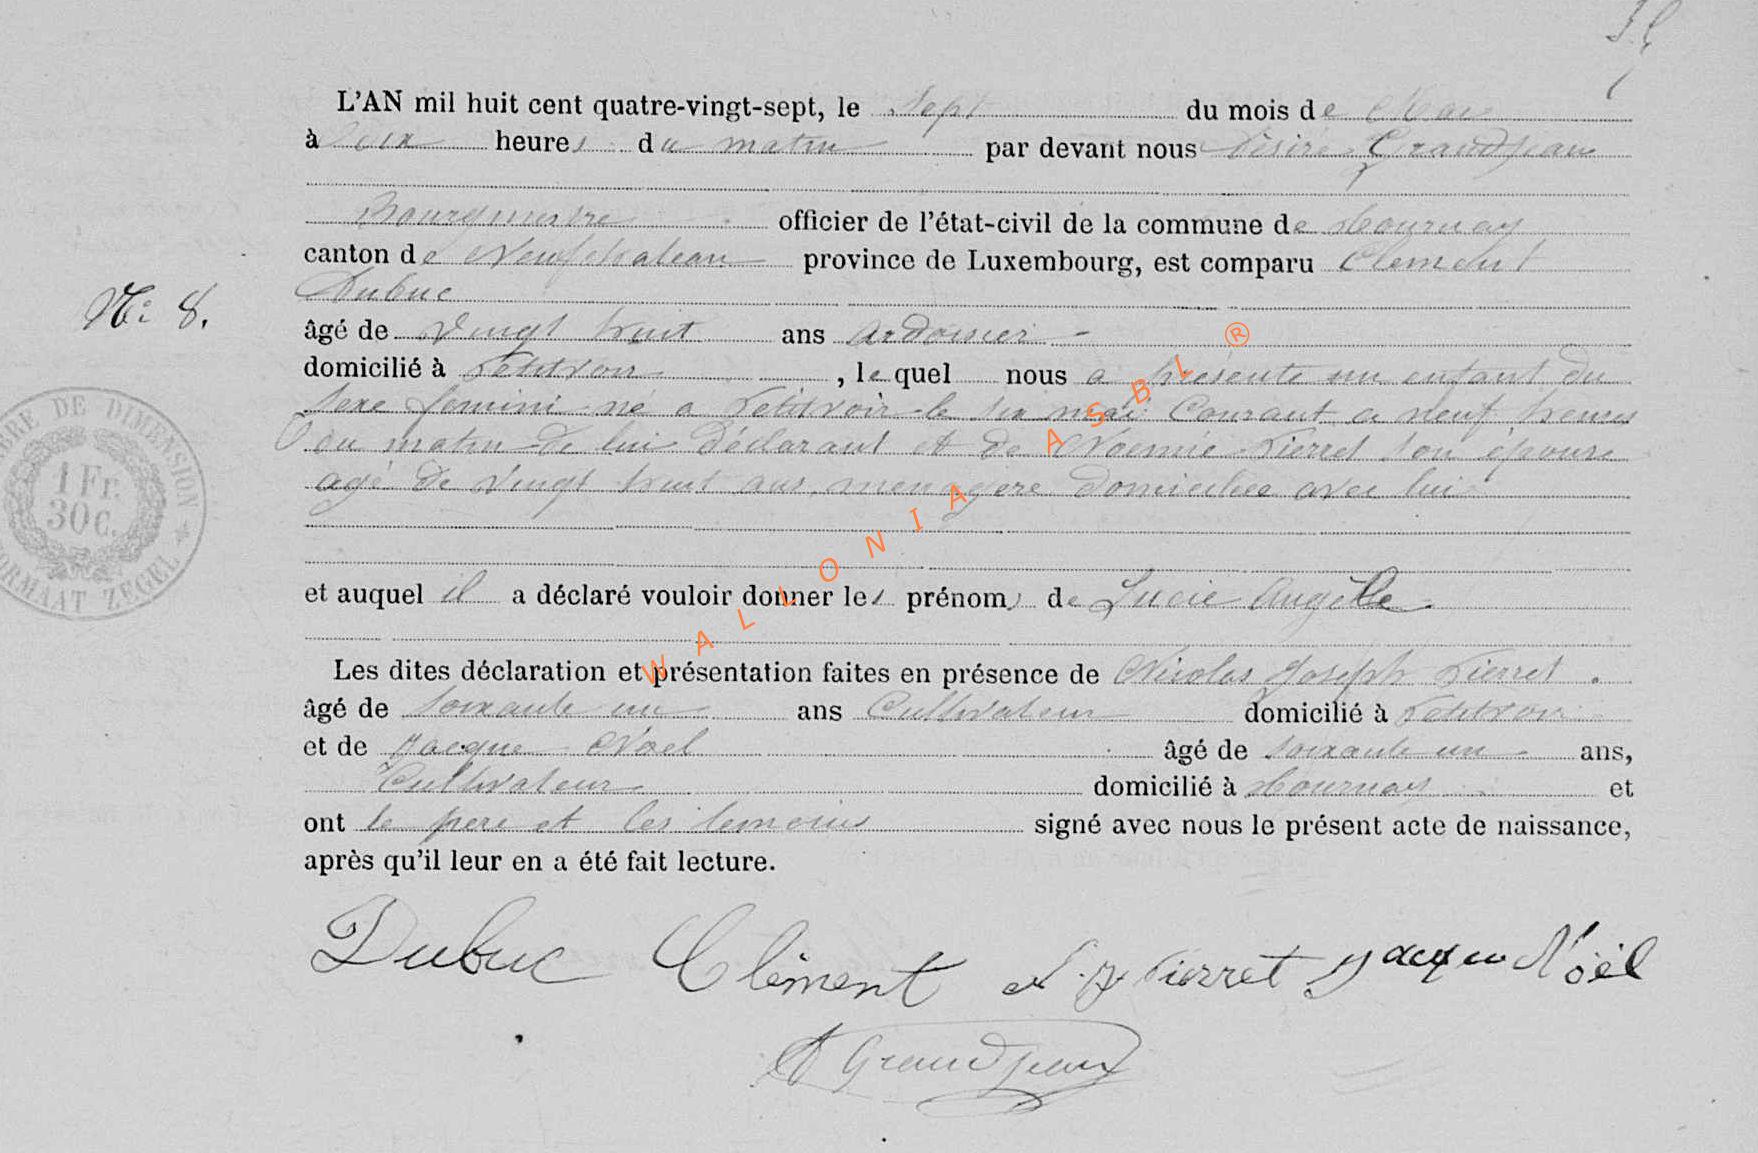 L'AN mil huit cent quatre-vingt-sept, le Sept du mois de Mai
à heures du matin par devant nous Désiré Grandjean
Bourgmestre officier de l'état-civil de la commune de Tournay
canton de Neufchateau province de Luxembourg, est comparu Clement
Dubuc
Nº 8.
âgé de Vingt huit ans ardoisier
domicilié à Petitvoir, le quel nous a présenté un enfant du
Sexe feminin né a Petitvoir le Six mai Courant a neuf heures
du matin de lui déclarant et de Noemie Pierret son épouse
agé de Vingt huit ans, menagère domiciliée avec lui
TIMBRE DE DIMENSION
1 Fr.
30 C.
FORMAAT ZEGEL
et auquel il a déclaré vouloir donner les prénoms de Lucie Angèlle
Les dites déclaration et présentation faites en présence de Nicolas Joseph Pierret.
âgé de Soixante un ans Cultivateur domicilié à Petitvoir
et de Jacque Noel âgé de Soixante un ans,
Cultivateur domicilié à Tournay et
ont le père et les temoins signé avec nous le présent acte de naissance,
après qu'il leur en a été fait lecture.
Dubuc Clèment N. J. Pierret Jacque Noèl
D Grandjean
WALLONIA ASBL ®